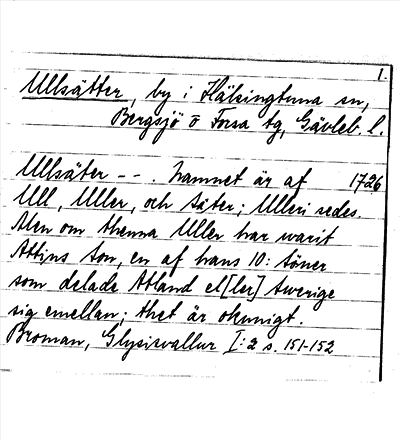 1.
Ullsätter, by i Hälsingtuna sn,
Bergsjö o Forsa tg, Gävleb. l.
Ullsäter - - . Namnet är af 1726
Ull, Uller, och säter; Ulleri sedes.
Men om thenna Uller har warit
Attins son, en af hans 10: söner
som delade Atland el[ler] Swerige
sig emellan; thet är okunnigt.
Broman, Glysisvallur I: 2 s. 151-152